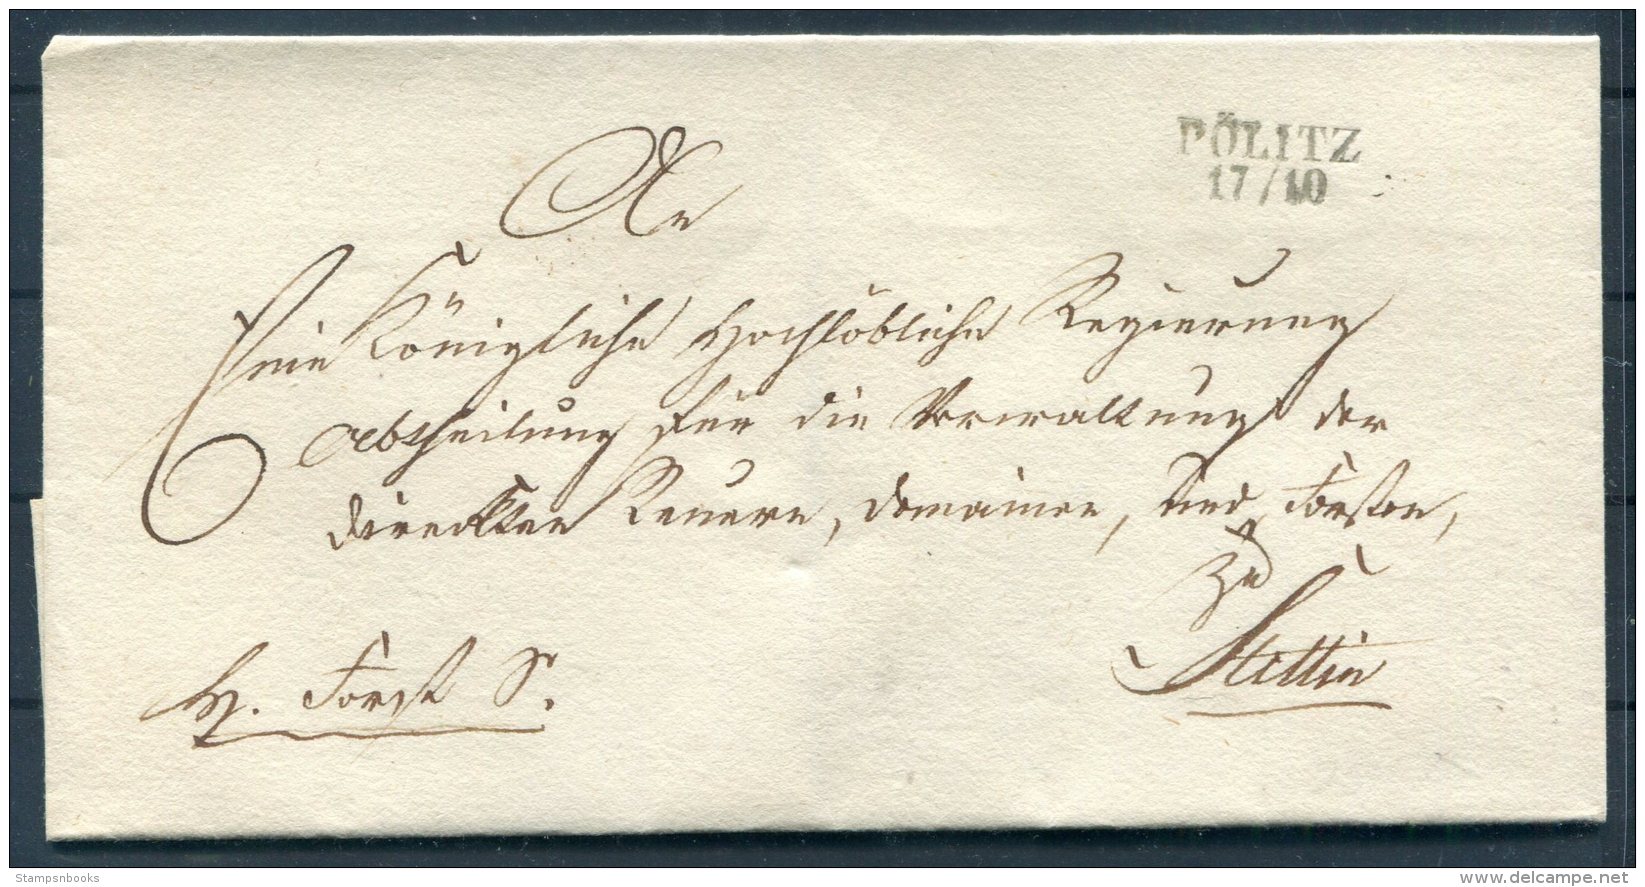 PÖLITZ
17/10
An
Eine Königliche Hochlöbliche Regierung
Abtheilung für die Verwaltung der
direckten Steuern, Domainen, und Forsten,
zu
Stettin
H. Forst S.
Stampsnbooks
delcampe.net